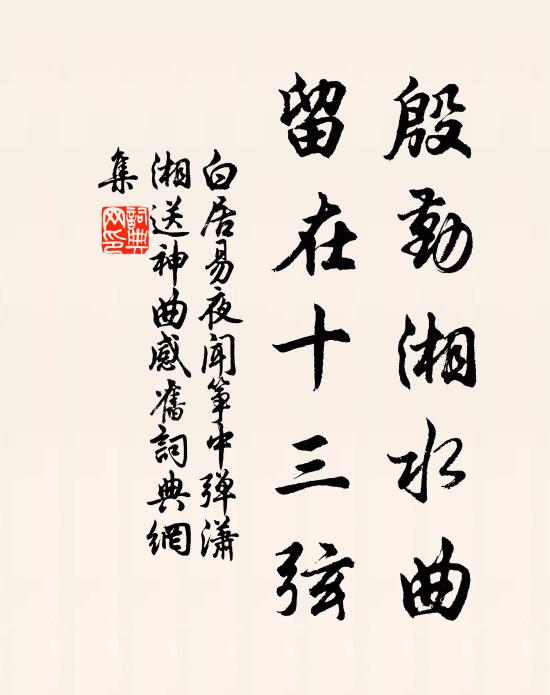 殷勤湘水曲
留在十三弦
白居易夜闻筝中弹潇
湘送神曲感舊詞典網
集
詞典網印